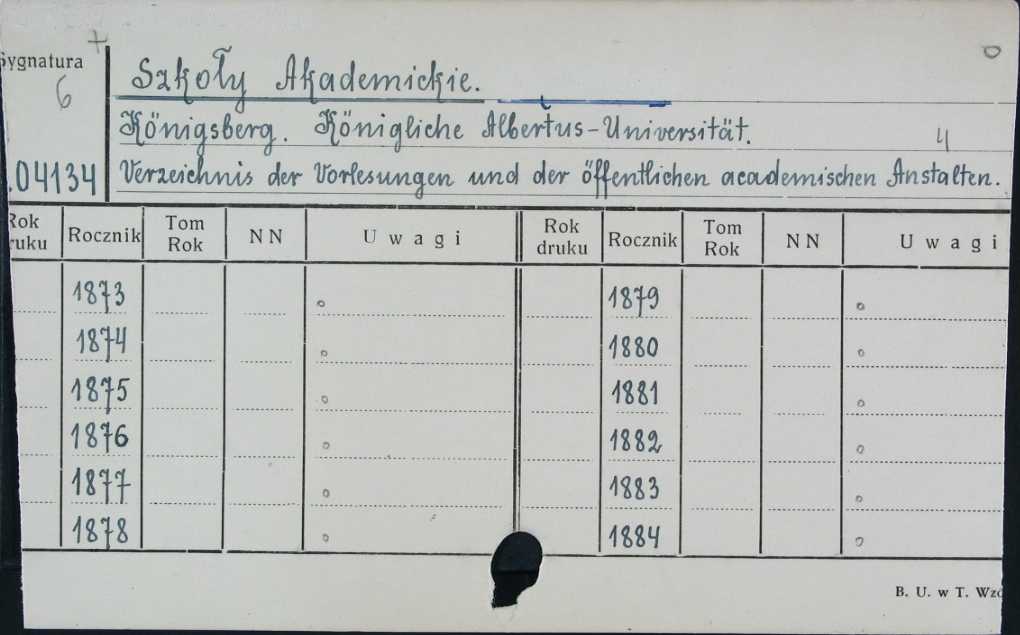 Sygnatura
6
04134
Szkoły Akademickie.
Königsberg. Königliche Albertus-Universität.
4
Verzeichnis der Vorlesungen und der öffentlichen academischen Anstalten.
Rok druku Rocznik Tom Rok NN Uwagi Rok druku Rocznik Tom Rok NN Uwagi
1873 1879
1874 1880
1875 1881
1876 1882
1877 1883
1878 1884
B. U. w T.